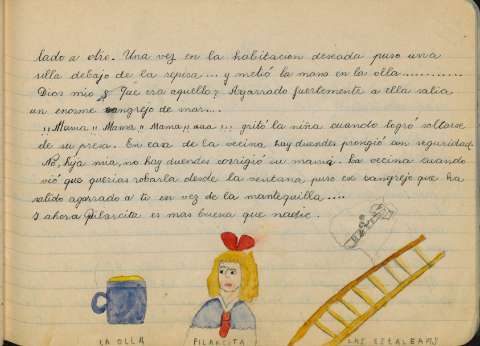 lado a otro. Una vez en la habitacion deseada puso una
silla debajo de la repisa... y metió la mano en la olla............
Dios mio ¿ Que era aquello? Agarrado fuertemente a ella salia
un enorme cangrejo de mar...
¡¡Mama!! Mama!! Mama!! aaa. !!! gritó la niña cuando logró soltarse
de su presa. En casa de la vecina hay duendes prosigió con seguridad.
No, hija mia, no hay duendes corrigió su mamá. La vecina cuando
vió que querias robarla desde la ventana puso ese cangrejo que ha
salido agarrado a ti en vez de la mantequilla....
Y ahora Pilarcita es mas buena que nadie.
LA OLLA
PILARCITA
LAS ESCALERAS